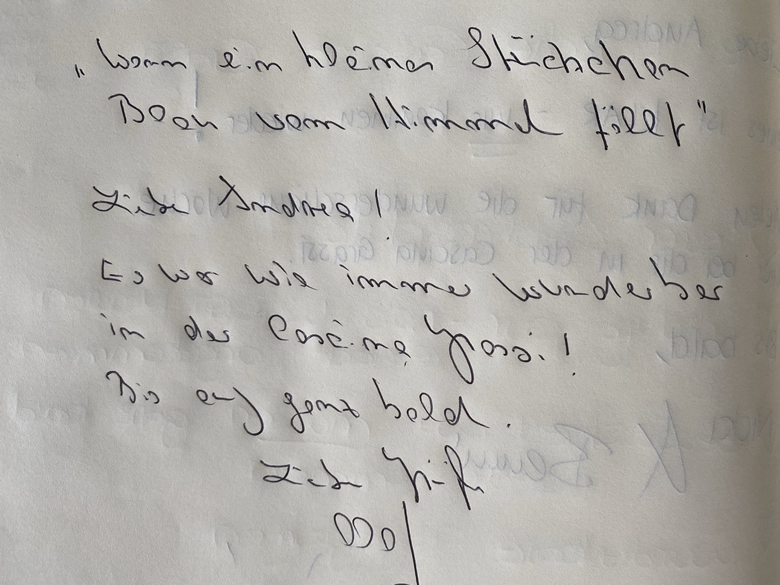 „Wenn ein kleines Stückchen
vom Himmel fällt"
Liebe Andrea!
Es war wie immer wunderbar
in der Cascina Grossi!
Bis auf ganz bald.
Liebe Grüße